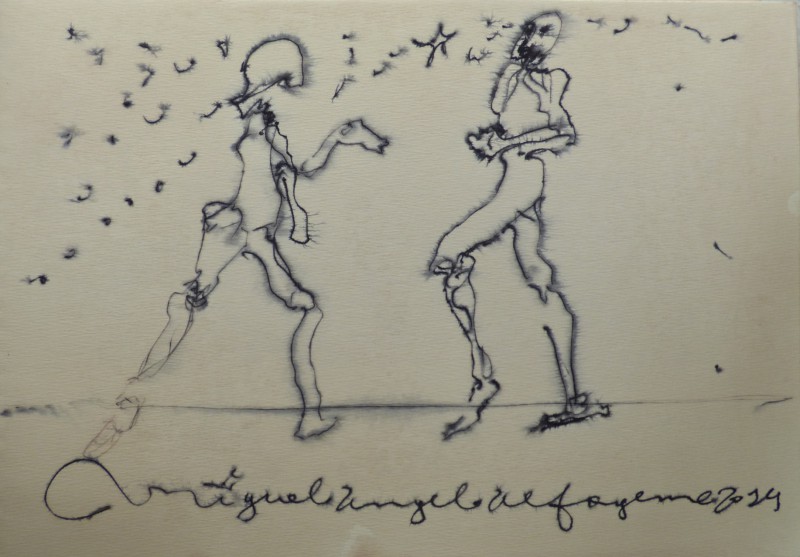 miguel angel alfageme 2014